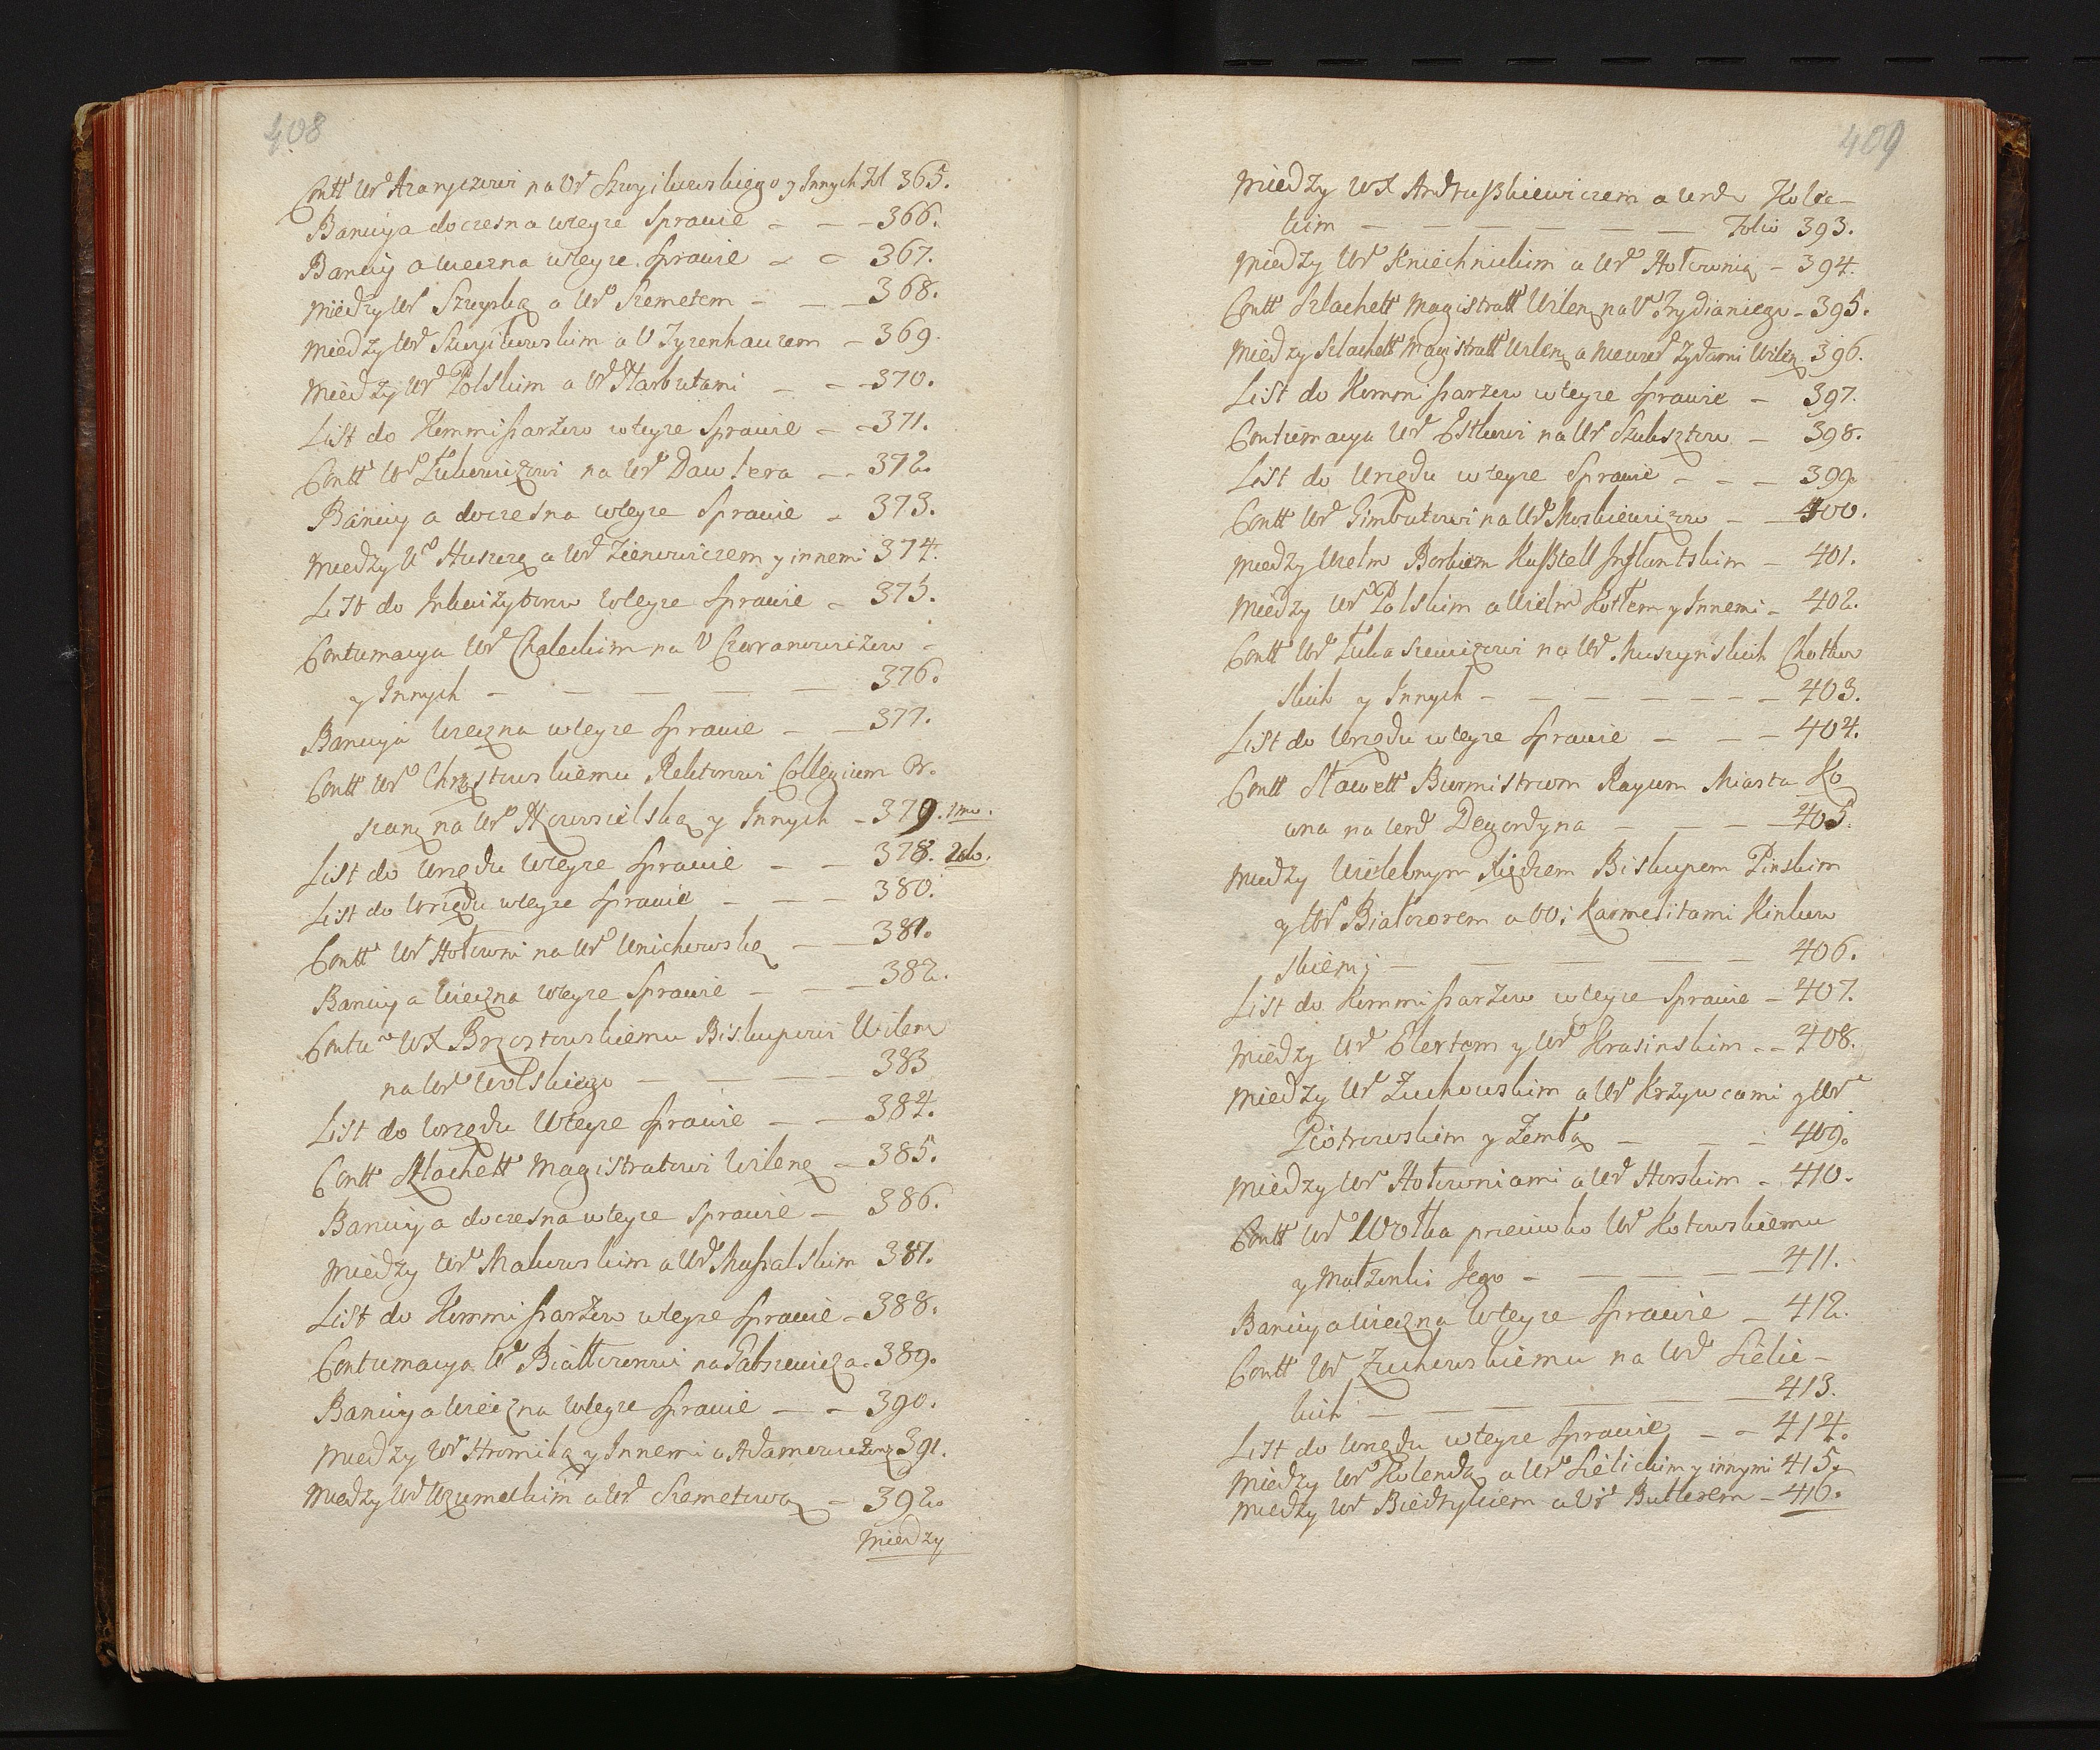 408
Contt Ur Azaryczowi na Ur Szwyikowskiego y Innych Fol 365.
Banicya doczesna wteyze Sprawie - - - 366.
Banicya wieczna wteyze Sprawie - - 367.
Między Ur Szwyską a Ur Szemetem - - - 368.
Między Ur Szwyikowskim a U Tyzenhauzem - 369.
Między Ur Polskim a Ur Narbutami - - - 370.
List do Kommissarzow wteyze Sprawie - - 371.
Contt Ur Łukowiczowi na Ur Dawtera - - 372.
Banicya doczesna wteyze Sprawie - 373.
Między Ur Huszczą a Ur Zienowiczem y innemi 374.
List do Inkwizytorow wteyze Sprawie - 375.
Contumacya Ur Chaleckim na U Czeranowiczow -
y Innych - - - - - 376.
Banicya wieczna wteyze Sprawie - - 377.
Contt Ur Chrząstowskiemu Rektorowi Collegium Cr.
na Ur y Innych - 379. 1mo.
List do Urzędu wteyze Sprawie - - 378. 2do.
List do Urzędu wteyze Sprawie - - - 380.
Contt Ur Hołowni na Ur Unichowską - - 381.
Banicya wieczna wteyze Sprawie - - - 382.
Contu WX Brzostowskiemu Biskupowi Wilen
na Ur Wolskiego - - - - 383
List do Urzędu wteyze Sprawie - - 384.
Contt Szlachett Magistratowi Wilenę - 385.
Banicya doczesna wteyze Sprawie - 386.
Między Ur Makowskim a Ur Massalskim 387.
List do Kommissarzow wteyze Sprawie - 388.
Contumacya Ur Białłozorowi na Gabszewicza - 389.
Banicya wieczna wteyze Sprawie - - 390.
Między Ur Hromiką y Innemi a Adamowiczową 391.
Między Ur Uzumeckim a Ur Szemetową - 392.
Między
409
Między WX Andruszkiewiczem a Urd Kolec-
kim - - - - - - Folio 393.
Między Ur Kniechnickim a Ur Hołownią - 394.
Contt Szlachett Magistratt Wilen na U Frydianiego - 395.
Między Szlachett Magistratt Wilen a Niewier Zydami Wilen 396.
List do Kommissarzow wteyze Sprawie - 397.
Contumacya Ur Estkowi na Ur Szuksztow - 398.
List do Urzędu wteyze Sprawie - - - 399.
Contt Ur Gimbutowi na Ur Moskiewiczow - - 400.
Między Wielm Borkiem Kasztell Inflantskim - 401.
Między Ur Polskim a Wielm Kotłem y Innemi - 402.
Contt Ur Łukaszewiczowi na Ur Muszynskich Chotkow
skich y Innych - - - - - - 403.
List do Urzędu wteyze Sprawie - - - 404.
Contt Sławett Burmistrwm Raycom Miasta Ko
wna na Urd Degordyna - - - 405.
Między Wielebnym Xiędzem Biskupem Pinskim
y Ur Białozorem a OO: Karmelitami Kinkow
skiemi - - - - - 406.
List do Kommissarzow wteyze Sprawie - 407.
Między Ur Elertom y Ur Krasinskim - - 408.
Między Ur Zuchowskim a Ur Krzywcami y Ur
Piotrowskim y Zemłą - - - 409.
Między Ur Hołowniami a Ur Horskim - 410.
Contt Ur Wołka przeciwko Ur Kotowskiemu
y Małzonki Jego - - - - 411.
Banicya wieczna wteyze Sprawie - 412.
Contt Ur Zuchowskiemu na Urd Sielic-
kich - - - - - - 413.
List do Urzędu wteyze Sprawie - - 414.
Między Ur Kolendą a Ur Sielickim y innymi 415.
Między Ur Biedrzykiem a Ur Butlerem - 416.